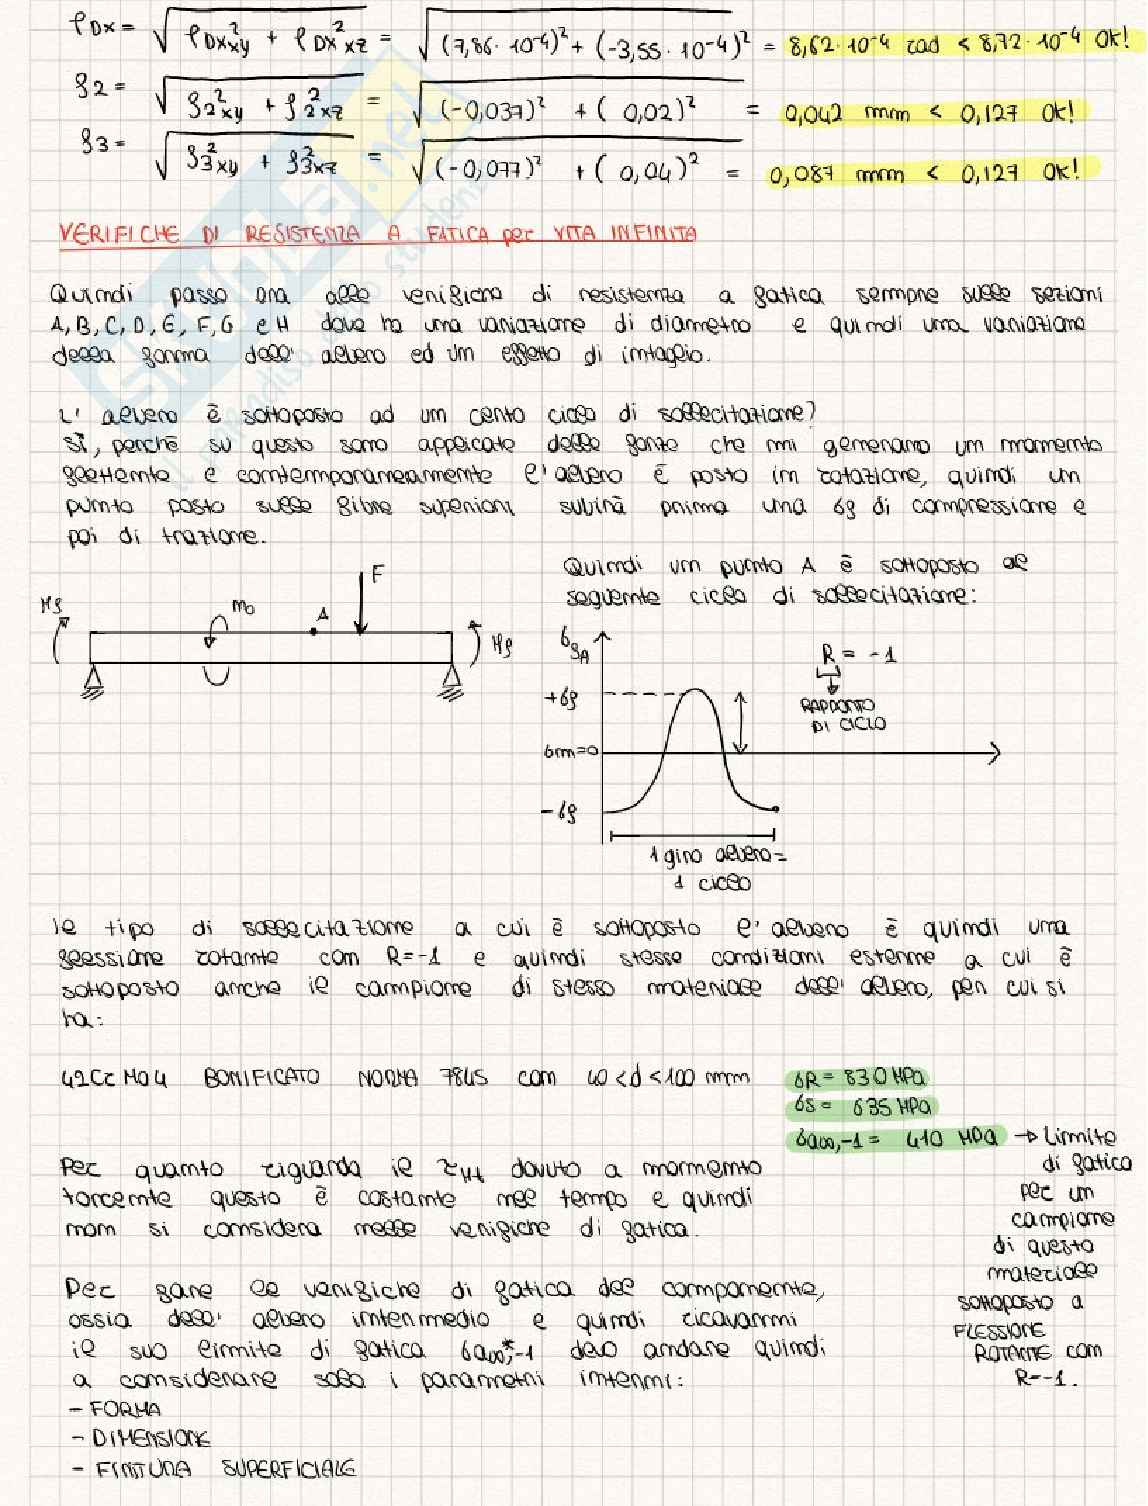 φDx = √(φDx²xy + φDx²xz) = √((7,86·10⁻⁴)² + (-3,55·10⁻⁴)²) = 8,62·10⁻⁴ rad < 8,72·10⁻⁴ Ok!
f2 = √(f2²xy + f2²xz) = √((-0,037)² + (0,02)²) = 0,042 mm < 0,127 Ok!
f3 = √(f3²xy + f3²xz) = √((-0,077)² + (0,04)²) = 0,087 mm < 0,127 Ok!
VERIFICHE DI RESISTENZA A FATICA per VITA INFINITA
Quindi passo ora alle verifiche di resistenza a fatica sempre sulle sezioni
A, B, C, D, E, F, G e H dove ho una variazione di diametro e quindi una variazione
della forma dell' albero ed un effetto di intaglio.
L' albero è sottoposto ad un certo ciclo di sollecitazione?
Sì, perchè su questo sono applicate delle forze che mi generano un momento
flettente e contemporaneamente l'albero è posto in rotazione, quindi un
punto posto sulle fibre superiori subirà prima una σf di compressione e
poi di trazione.
Quindi un punto A è sottoposto al
seguente ciclo di sollecitazione:
Mf
m0
A
F
Mf
σfA
+σf
σm=0
-σf
R = -1
RAPPORTO
DI CICLO
1 giro albero=
1 ciclo
Il tipo di sollecitazione a cui è sottoposto l' albero è quindi una
flessione rotante con R=-1 e quindi stesse condizioni esterne a cui è
sottoposto anche il campione di stesso materiale dell' albero, per cui si
ha:
42CrMo4 BONIFICATO NORMA 7845 con 40<d<100 mm
σR = 830 MPa
σS = 635 MPa
σa∞,-1 = 410 MPa → Limite
di fatica
per un
campione
di questo
materiale
sottoposto a
FLESSIONE
ROTANTE con
R=-1.
Per quanto riguarda il τMt dovuto a momento
torcente questo è costante nel tempo e quindi
non si considera nelle verifiche di fatica.
Per fare le verifiche di fatica del componente,
ossia dell' albero intermedio e quindi ricavarmi
il suo limite di fatica σa∞*,-1 devo andare quindi
a considerare solo i parametri interni:
- FORMA
- DIMENSIONE
- FINITURA SUPERFICIALE